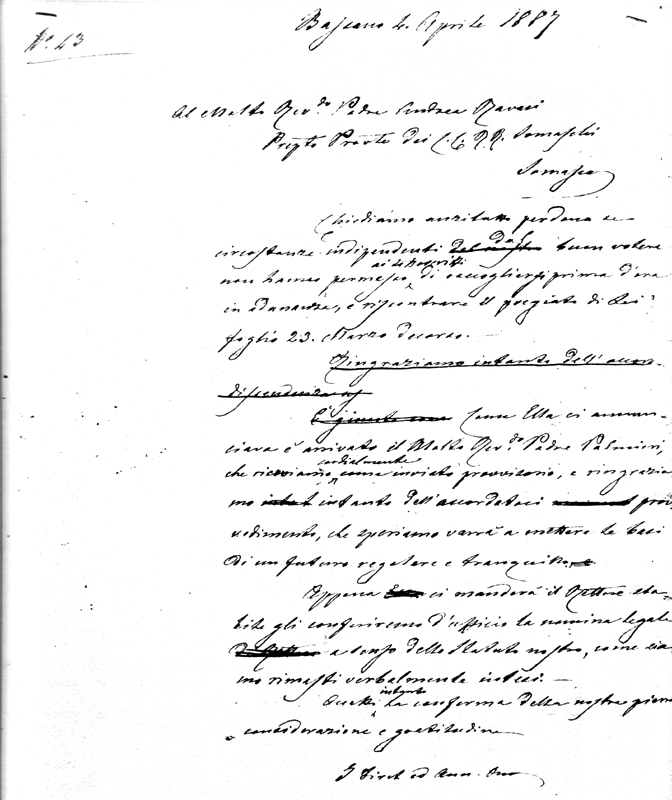 N.° 43
Bassano 4. Aprile 1887
Al Molto Rev.do Padre Andrea Ravasi
Prep.to Prov.le dei C.C. R.R. Somaschi
Somasca
Chiediamo anzitutto perdono se
circostanze indipendenti del nostro dal buon volere
non hanno permesso ai sottoscritti di raccogliersi prima d'ora
in adunanza, e riscontrare il pregiato di Lei
foglio 23. Marzo decorso. —
Ringraziamo intanto dell'accon-
discendenza
È giunto come Come Ella ci annun-
ciava è arrivato il Molto Rev.do Padre Palmieri,
che riceviamo cordialmente come inviato provvisorio, e ringrazia
mo intanto dell'accordatoci prov
vedimento, che speriamo varrà a mettere le basi
di un futuro regolare e tranquillo
Appena ci manderà il Rettore sta-
bile gli conferiremo d'ufficio la nomina legale
a senso dello Statuto nostro, come sia-
mo rimasti verbalmente intesi. —
intanto la conferma della nostra piena
considerazione e gratitudine